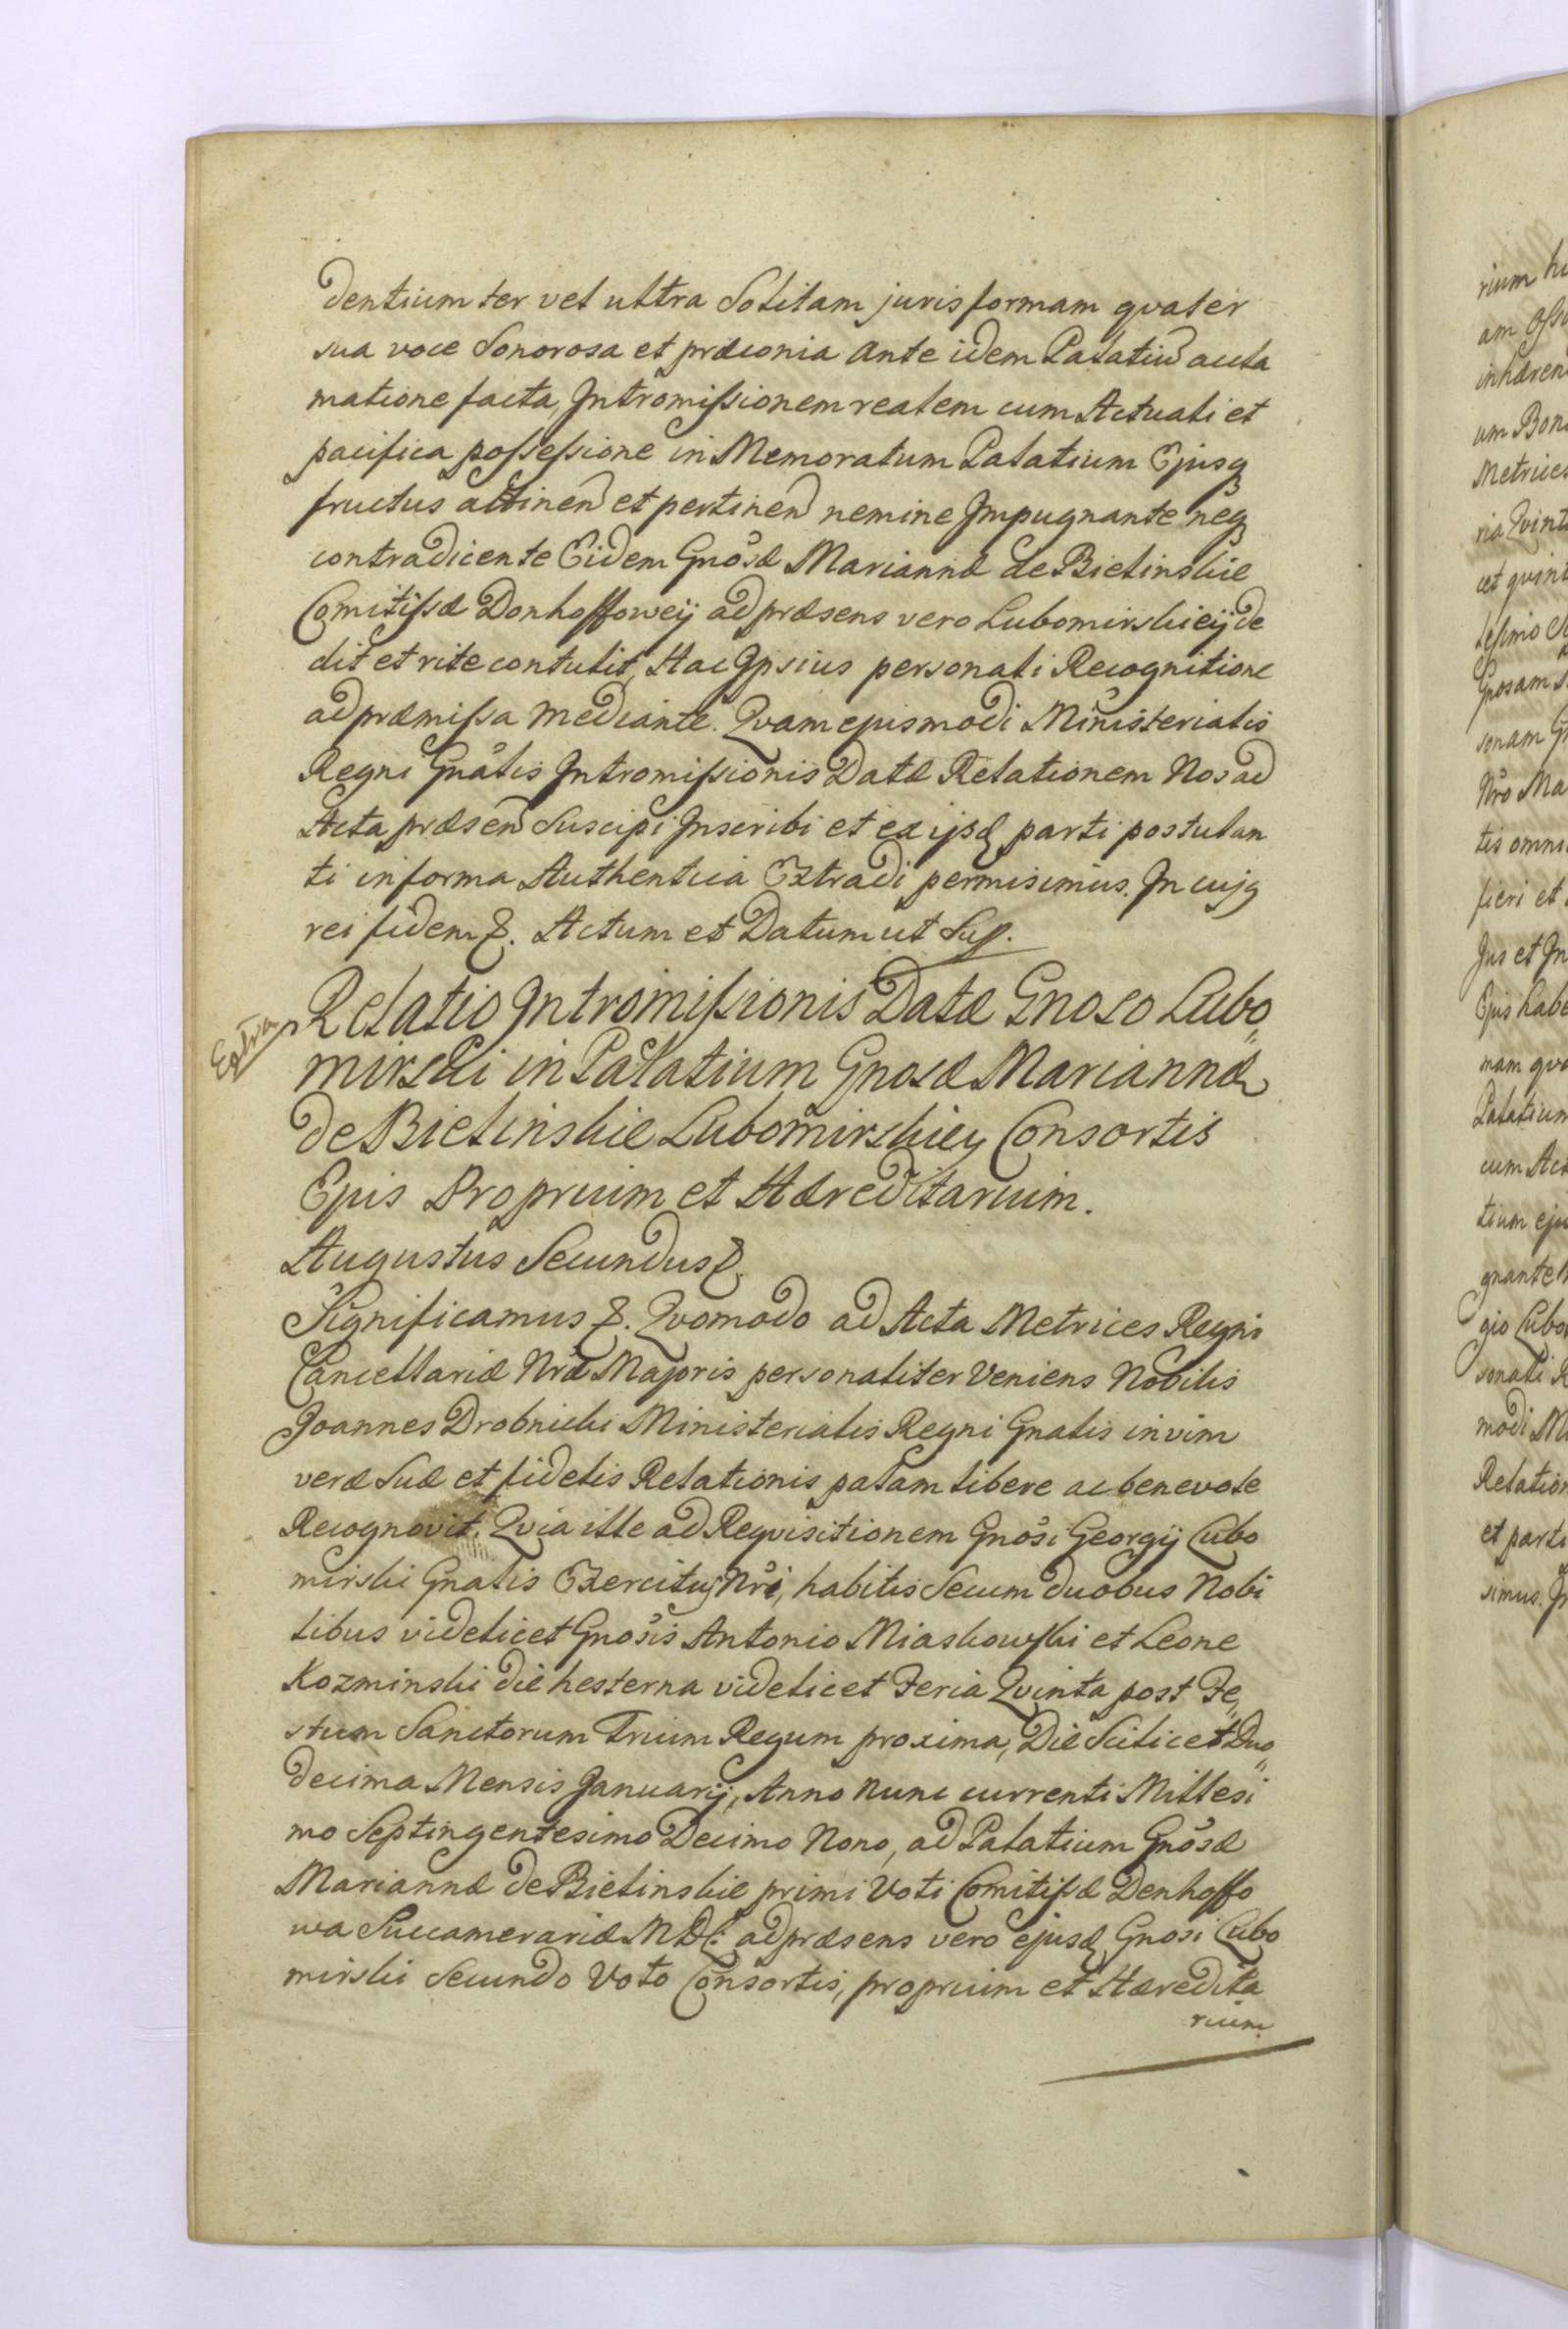 dentium ter vel ultra Solitam juris formam qvater
sua voce Sonorosa et præconia ante idem Palatiũ accla
matione facta, Intromißionem realem cum Actuali et
pacifica poßeßione in Memoratum Palatium Ejusq
fructus attinen et pertinen nemine Impugnante neq
contradicente Eidem Gnosæ Mariannæ de Bielinskie
Comitißæ Donhoffoweij ad præsens vero Lubomirskieij de
dit et rite contulit, Hac Ipsius personali Recognitione
ad præmißa mediante. Qvam ejusmodi Ministerialis
Regni Gnalis Intromißionis Datæ Relationem Nos ad
Acta præsen Suscipi Inscribi et ex ijsd parti postulan
ti in forma Authentica Extradi permisimus. In cujq
rei fidem &. Actum et Datum ut Sup.
Extra
Relatio Intromißionis Datæ Gnoso Lubo,,
mirski in Palatium Gnosæ Mariannæ
de Bielinskie Lubomirskiey Consortis
Ejus Proprium et Hæreditarium.
Augustus Secundus &.
Significamus &. Qvomodo ad Acta Metrices Regni
Cancellariæ Nræ Majoris personaliter Veniens Nobilis
Joannes Drobnicki Ministerialis Regni Gnalis in vim
veræ Suæ et fidelis Relationis palam libere ac benevole
Recognovit. Qvia ille ad Reqvisitionem Gnosi Georgij Lubo
mirski Gnalis Exercituj Nri, habitis Secum duobus Nobi
libus videlicet Gnosis Antonio Miaskowski et Leone
Kozminski die hesterna videlicet Feria Qvinta post Fe,,
stum Sanctorum Trium Regum proxima, Die Scilicet Duo,,
decima Mensis Januarij, Anno nunc currenti Millesi
mo Septingentesimo Decimo Nono, ad Palatium Gnosæ
Mariannæ de Bielinskie primi Voti Comitißæ Denhoffo
wa Succamerariæ MDL: ad præsens vero ejusd Gnosi Lubo
mirski Secundo Voto Consortis, proprium et Hæredita
rium